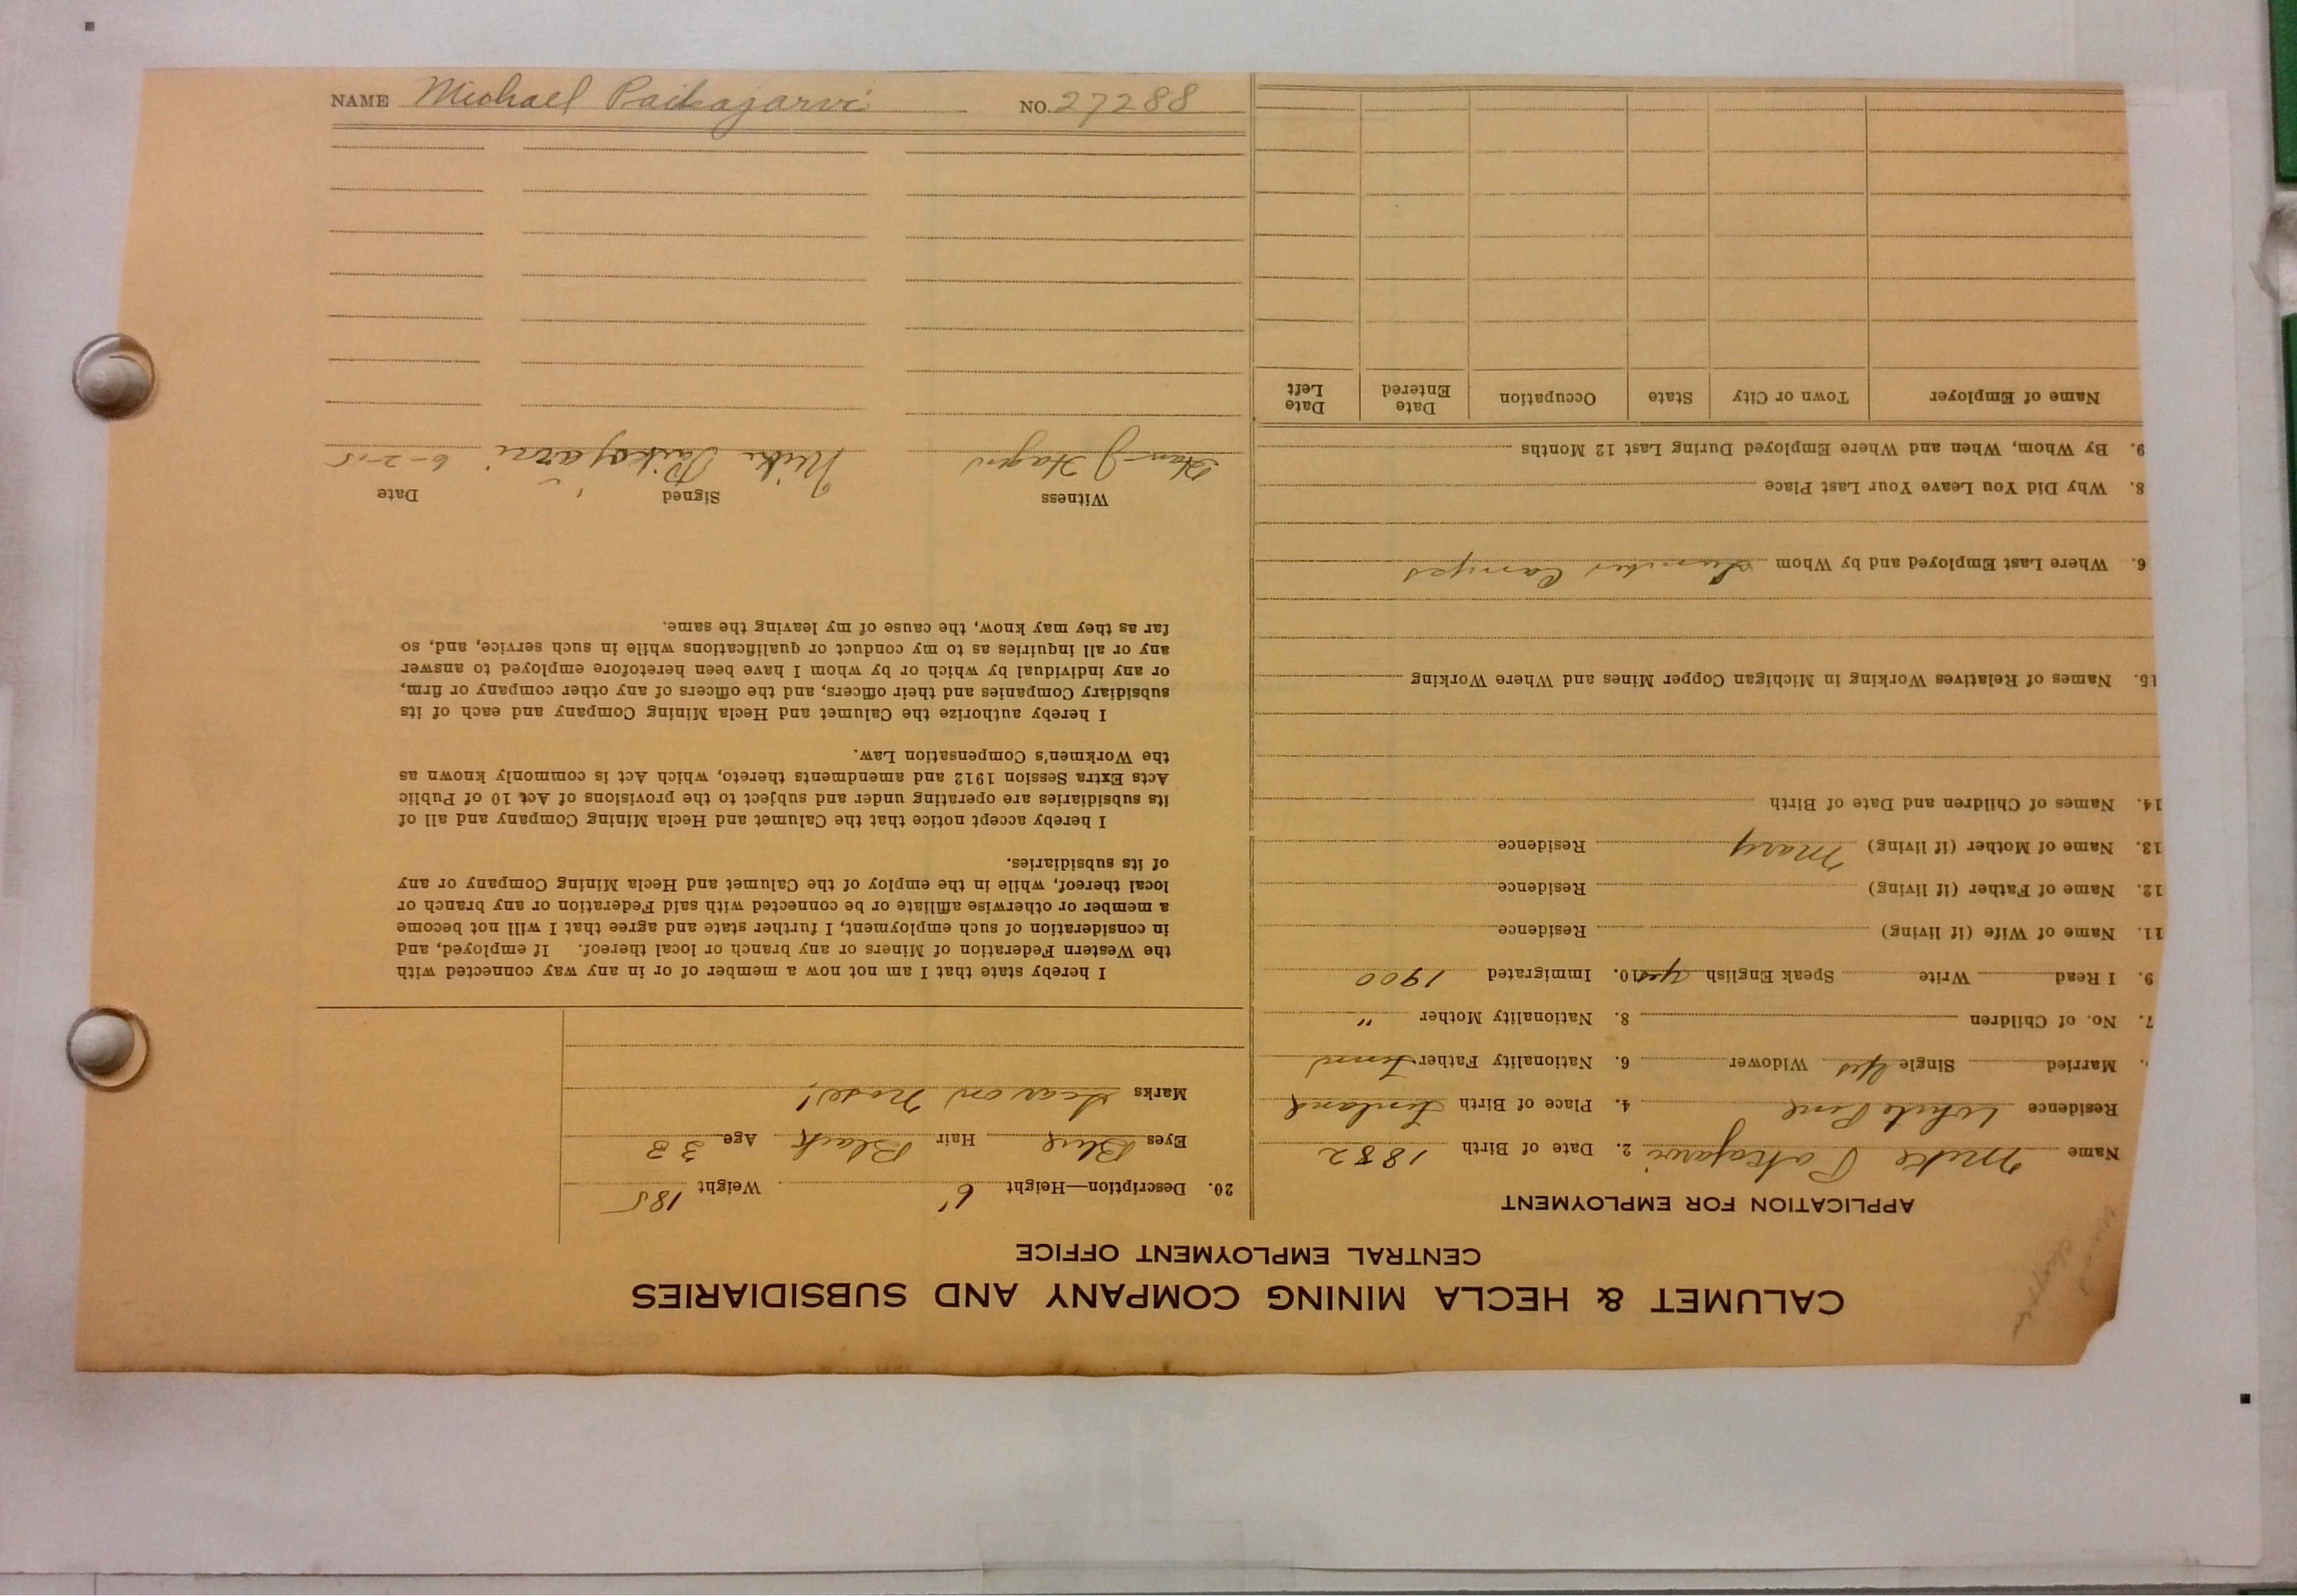 NAME Michael Paikajarvi NO. 27288
CALUMET & HECLA MINING COMPANY AND SUBSIDIARIES
CENTRAL EMPLOYMENT OFFICE
APPLICATION FOR EMPLOYMENT
Name Mike Pakajarvi 2. Date of Birth 1882
Residence White Pine 4. Place of Birth Finland
Married Single Yes Widower 6. Nationality Father Finn
7. No. of Children 8. Nationality Mother "
9. I Read Write Speak English yes 10. Immigrated 1900
11. Name of Wife (if living) Residence
12. Name of Father (if living) Residence
13. Name of Mother (if living) Mary Residence
14. Names of Children and Date of Birth
15. Names of Relatives Working in Michigan Copper Mines and Where Working
6. Where Last Employed and by Whom Lumber Camps
8. Why Did You Leave Your Last Place
9. By Whom, When and Where Employed During Last 12 Months
Name of Employer Town or City State Occupation Date Entered Date Left
20. Description—Height 6' Weight 185
Eyes Blue Hair Black Age 33
Marks Scar on Nose!
I hereby state that I am not now a member of or in any way connected with
the Western Federation of Miners or any branch or local thereof. If employed, and
in consideration of such employment, I further state and agree that I will not become
a member or otherwise affiliate or be connected with said Federation or any branch or
local thereof, while in the employ of the Calumet and Hecla Mining Company or any
of its subsidiaries.
I hereby accept notice that the Calumet and Hecla Mining Company and all of
its subsidiaries are operating under and subject to the provisions of Act 10 of Public
Acts Extra Session 1912 and amendments thereto, which Act is commonly known as
the Workmen's Compensation Law.
I hereby authorize the Calumet and Hecla Mining Company and each of its
subsidiary Companies and their officers, and the officers of any other company or firm,
or any individual by which or by whom I have been heretofore employed to answer
any or all inquiries as to my conduct or qualifications while in such service, and, so
far as they may know, the cause of my leaving the same.
Witness Signed Date
J Hagen Mike Paikajarvi 6-2-15